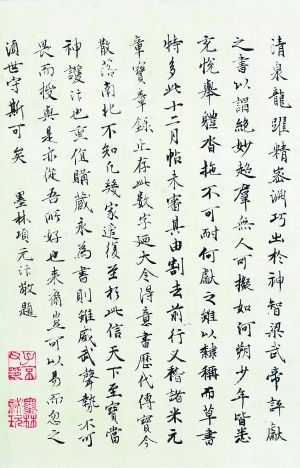 清泉龍躍精密淵巧出於神智梁武帝評獻
之書以謂絕妙超羣無人可擬如河朔少年皆悉
充悅舉體沓拖不可耐何獻之雖以隸稱而草書
特多此十二月帖未審其由割去前行又稽諸米元
章寶章錄止存此數字廼大令得意書歷代傳寶今
散落南北不知凡幾家這復至於此信天下至寶當
神護汴也重值購藏永為書則雖威武聲勢不可
畏而授與是亦從吾所好也來裔豈可以易而忽之
須世守斯可矣 墨林項元汴敬題
子京父印
墨林秘玩